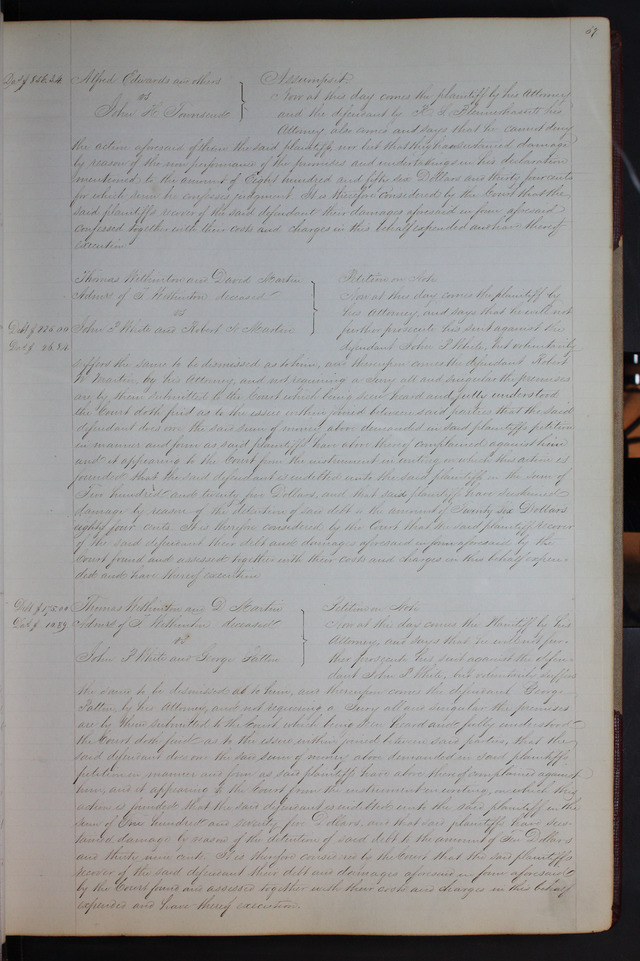 67
Dam $856.34. Alfred Edwards and others } Assumpsit
vs Now at this day comes the plaintiff by his Attorney
John H. Townsend and the defendant by his
Attorney also comes and says that he cannot deny
the action aforesaid of them the said plaintiffs nor but that they have sustained damage
by reason of the non performance of the promises and undertakings in his declaration
mentioned to the amount of Eight hundred and fifty six Dollars and thirty four cents
for which sum he confesses judgment. It is therefore considered by the Court that the
said plaintiffs recover of the said defendant their damages aforesaid in form aforesaid
confessed together with their costs and charges in this behalf expended and have thereof
execution
Thomas Wetherton and David Martin } Petition on Note
Admrs of T. Wetherton deceased Now at this day comes the plaintiff by
vs his Attorney, and says that he will not
Debt $ 525.00 John P White and Robert W Martin further prosecute his suit against the
Dam $ 26.84. defendant John P White, but voluntarily
suffers the same to be dismissed as to him, and thereupon comes the defendant Robert
W Martin, by his Attorney, and not requiring a Jury all and singular the premises
are by them submitted to the Court which being seen heard and fully understood
the Court doth find as to the issue within joined between said parties that the said
defendant does owe the said sum of money above demanded in said plaintiffs petition
in manner and form as said plaintiffs have above thereof complained against him
and it appearing to the Court from the instrument in writing on which this action is
founded that the said defendant is indebted unto the said plaintiff in the sum of
Five hundred and twenty five Dollars, and that said plaintiff have sustained
damage by reason of the detention of said debt to the amount of Twenty six Dollars
eighty four cents. It is therefore considered by the Court that the said plaintiffs recover
of the said defendant their debt and damages aforesaid in form aforesaid by the
Court found and assessed together with their costs and charges in this behalf expen-
ded and have thereof execution
Debt $ 175.00 Thomas Wetherton and D. Martin } Petition on Note
Dam $ 10.39 Admrs of T. Wetherton deceased Now at this day comes the Plaintiff by his
vs Attorney, and says that he will not fur-
John P White and George Patten ther prosecute his suit against the defen-
dant John P White, but voluntarily suffers
the same to be dismissed as to him, and thereupon comes the defendant George
Patten, by his Attorney, and not requiring a Jury all and singular the premises
are by them submitted to the Court which being seen heard and fully understood
the Court doth find as to the issue within joined between said parties, that the
said defendant does owe the said sum of money above demanded in said plaintiffs
petition in manner and form as said plaintiffs have above thereof complained against
him, and it appearing to the Court from the instrument in writing, on which this
action is founded that the said defendant is indebted unto the said plaintiff in the
sum of One hundred and seventy five Dollars, and that said plaintiff have sus-
tained damage by reason of the detention of said debt to the amount of Ten Dollars
and thirty nine cents. It is therefore considered by the Court that the said plaintiffs
recover of the said defendant their debt and damages aforesaid in form aforesaid
by the Court found and assessed together with their costs and charges in this behalf
expended and have thereof execution.